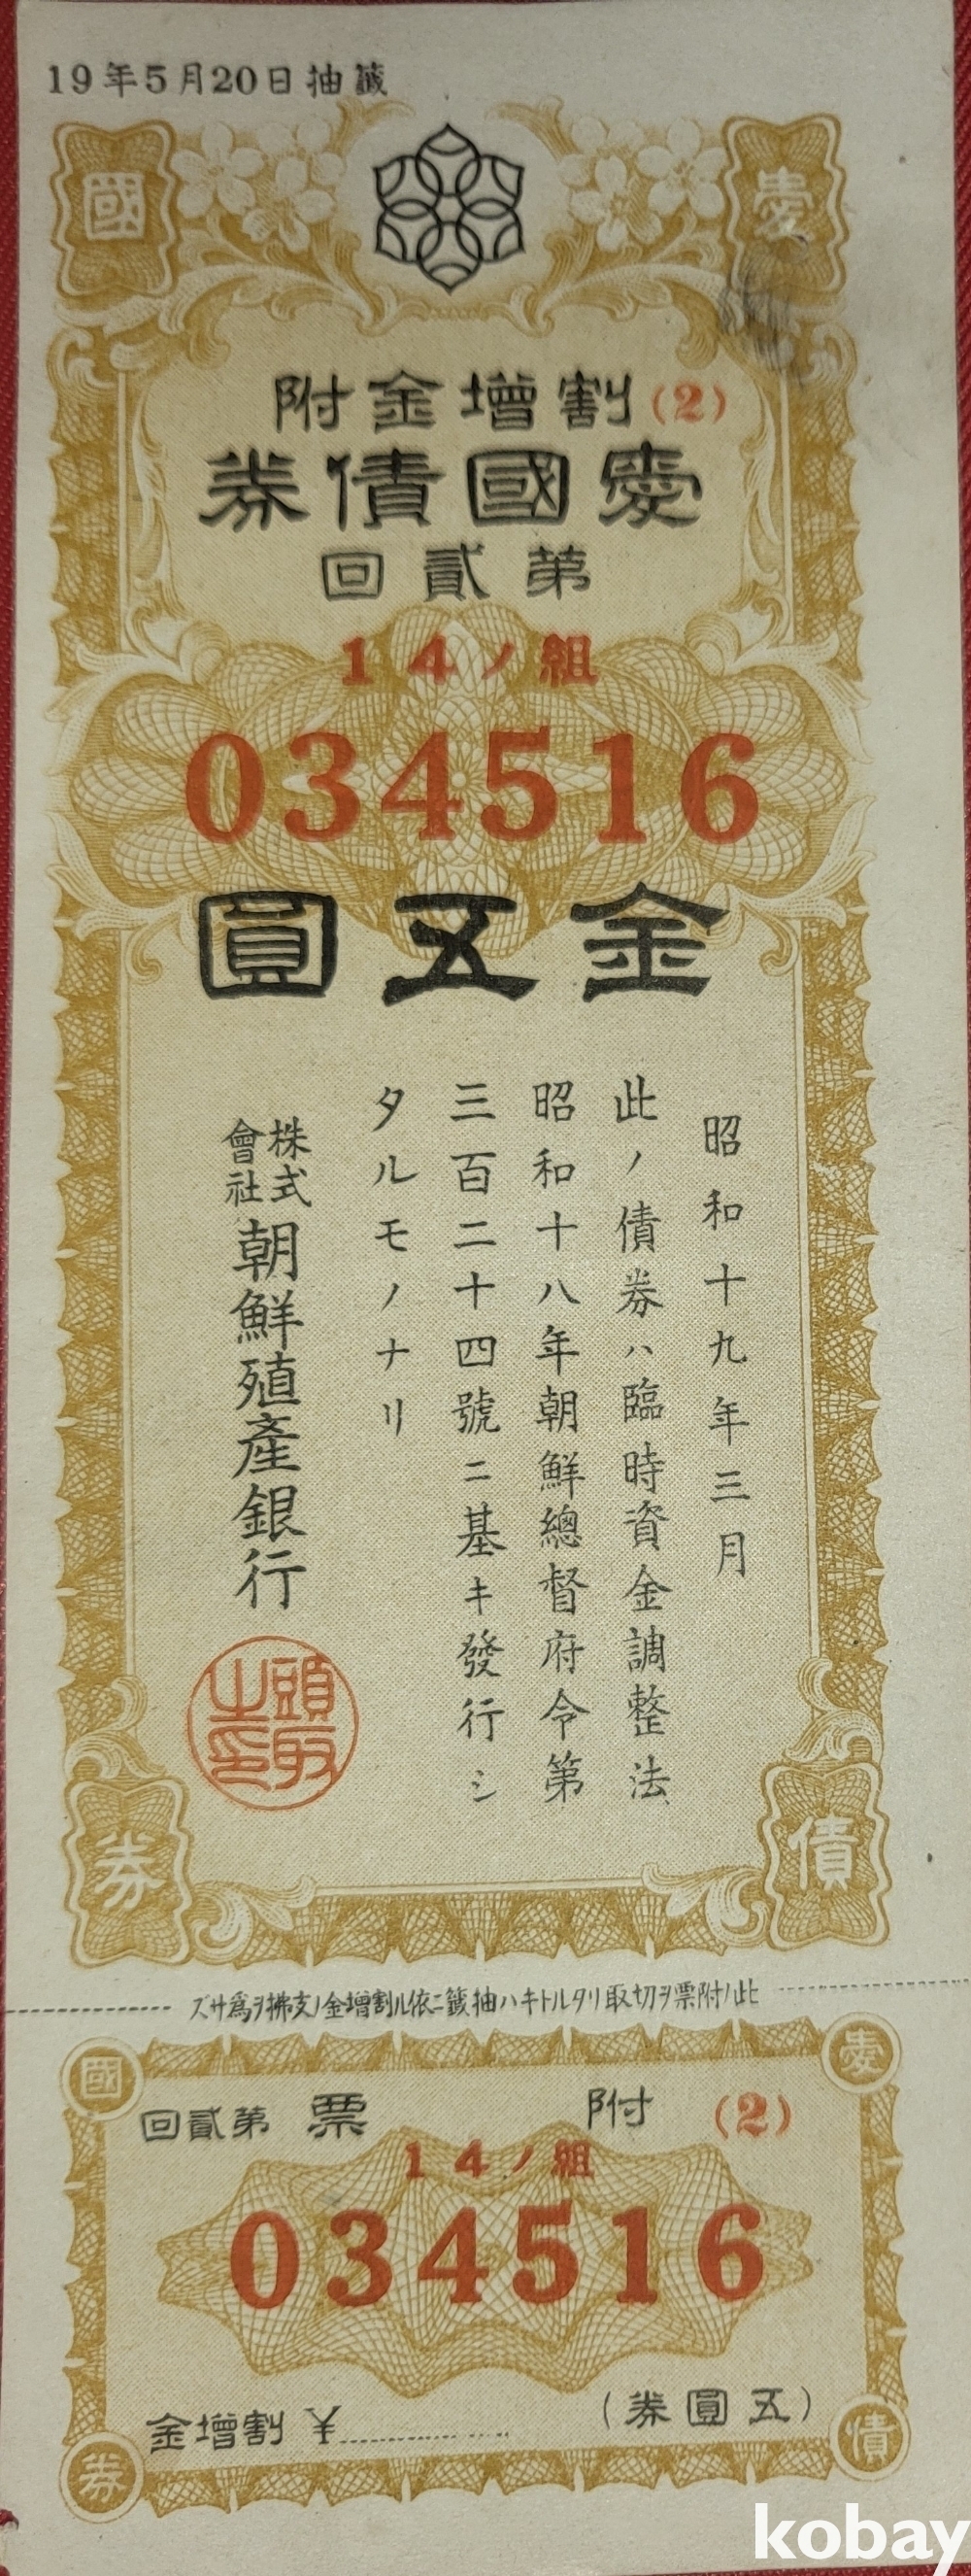 19年5月20日抽籤
愛國
割增金附(2)
愛國債券
第貳回
14ノ組
034516
金五圓
昭和十九年三月
此ノ債券ハ臨時資金調整法
昭和十八年朝鮮總督府令第
三百二十四號ニ基キ發行シ
タルモノナリ
株式會社朝鮮殖產銀行
頭取之印
債券
此ノ附票ヲ切取リタルトキハ抽籤ニ依ル割增金ノ支拂ヲ爲サズ
愛國
附票 第貳回 (2)
14ノ組
034516
(五圓券)
割增金 ¥
債券
kobay